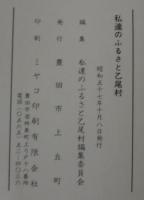 私達のふるさと乙尾村
昭和五十七年十月八日発行
編集 私達のふるさと乙尾村編集委員会
発行 豊田市上丘町
印刷 ミヤコ印刷有限会社
豊田市
電話